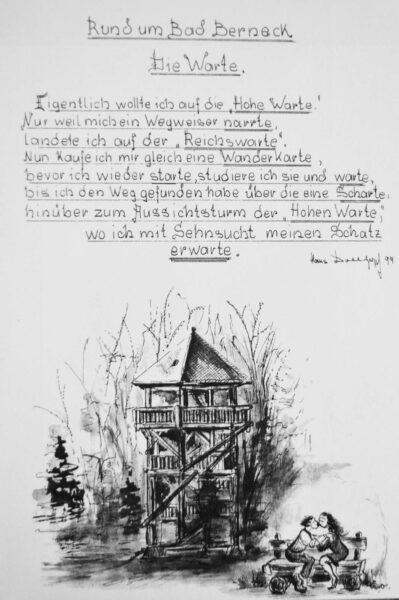 Rund um Bad Berneck
Die Warte.
Eigentlich wollte ich auf die „Hohe Warte."
Nur weil mich ein Wegweiser narrte,
landete ich auf der „Reichswarte".
Nun kaufe ich mir gleich eine Wanderkarte,
bevor ich wieder starte, studiere ich sie und warte,
bis ich den Weg gefunden habe über die eine Scharte,
hinüber zum Aussichtsturm der „Hohen Warte",
wo ich mit Sehnsucht meinen Schatz
erwarte.
Hans 94